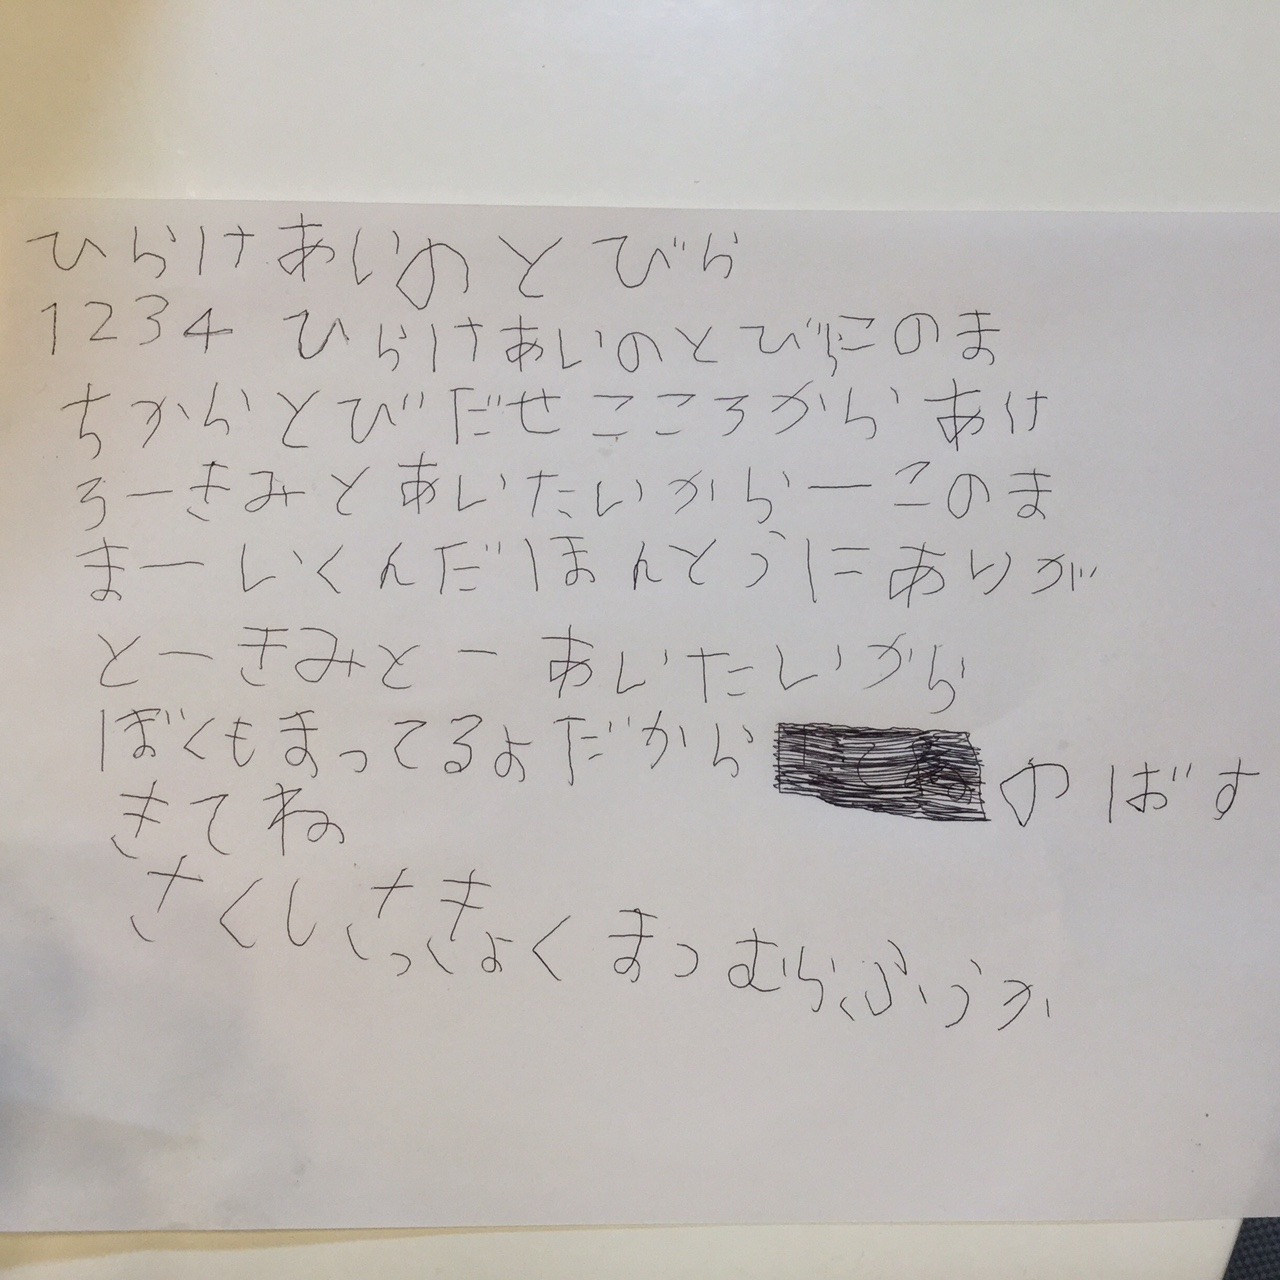 ひらけあいのとびら
1234 ひらけあいのとびらこのま
ちからとびだせこころからあけ
ろーきみとあいたいからーこのま
まーいくんだほんとうにありが
とーきみとーあいたいから
ぼくもまってるよだから のばす
きてね
さくしさっきょくまつむらふうか